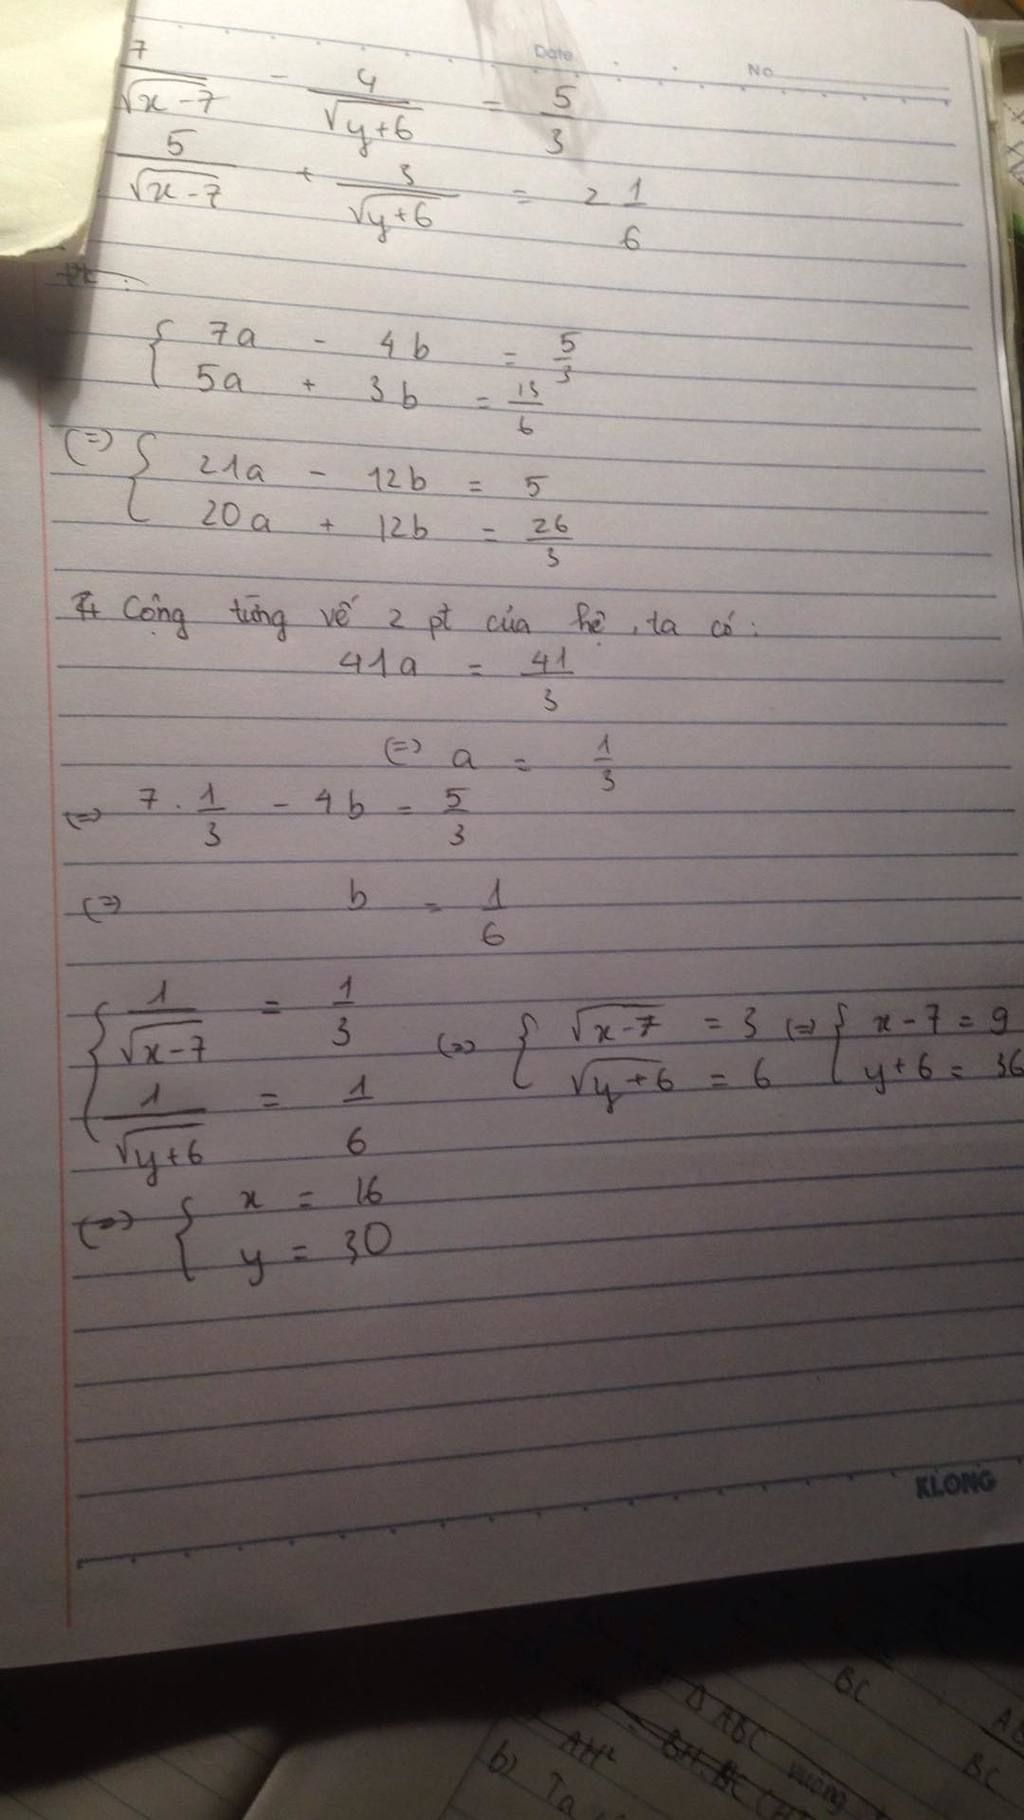 Date
No
7/√(x-7) - 4/√(y+6) = 5/3
5/√(x-7) + 3/√(y+6) = 2 1/6
{ 7a - 4b = 5/3
5a + 3b = 13/6
(=) { 21a - 12b = 5
20a + 12b = 26/3
Cộng từng vế 2 pt của hệ, ta có:
41a = 41/3
(=) a = 1/3
(=) 7 . 1/3 - 4b = 5/3
(=) b = 1/6
{ 1/√(x-7) = 1/3
1/√(y+6) = 1/6
(=) { √(x-7) = 3
√(y+6) = 6
(=) { x - 7 = 9
y + 6 = 36
(=) { x = 16
y = 30
KLONG
BC
Δ ABC vuông
AH²
BC
b) Ta